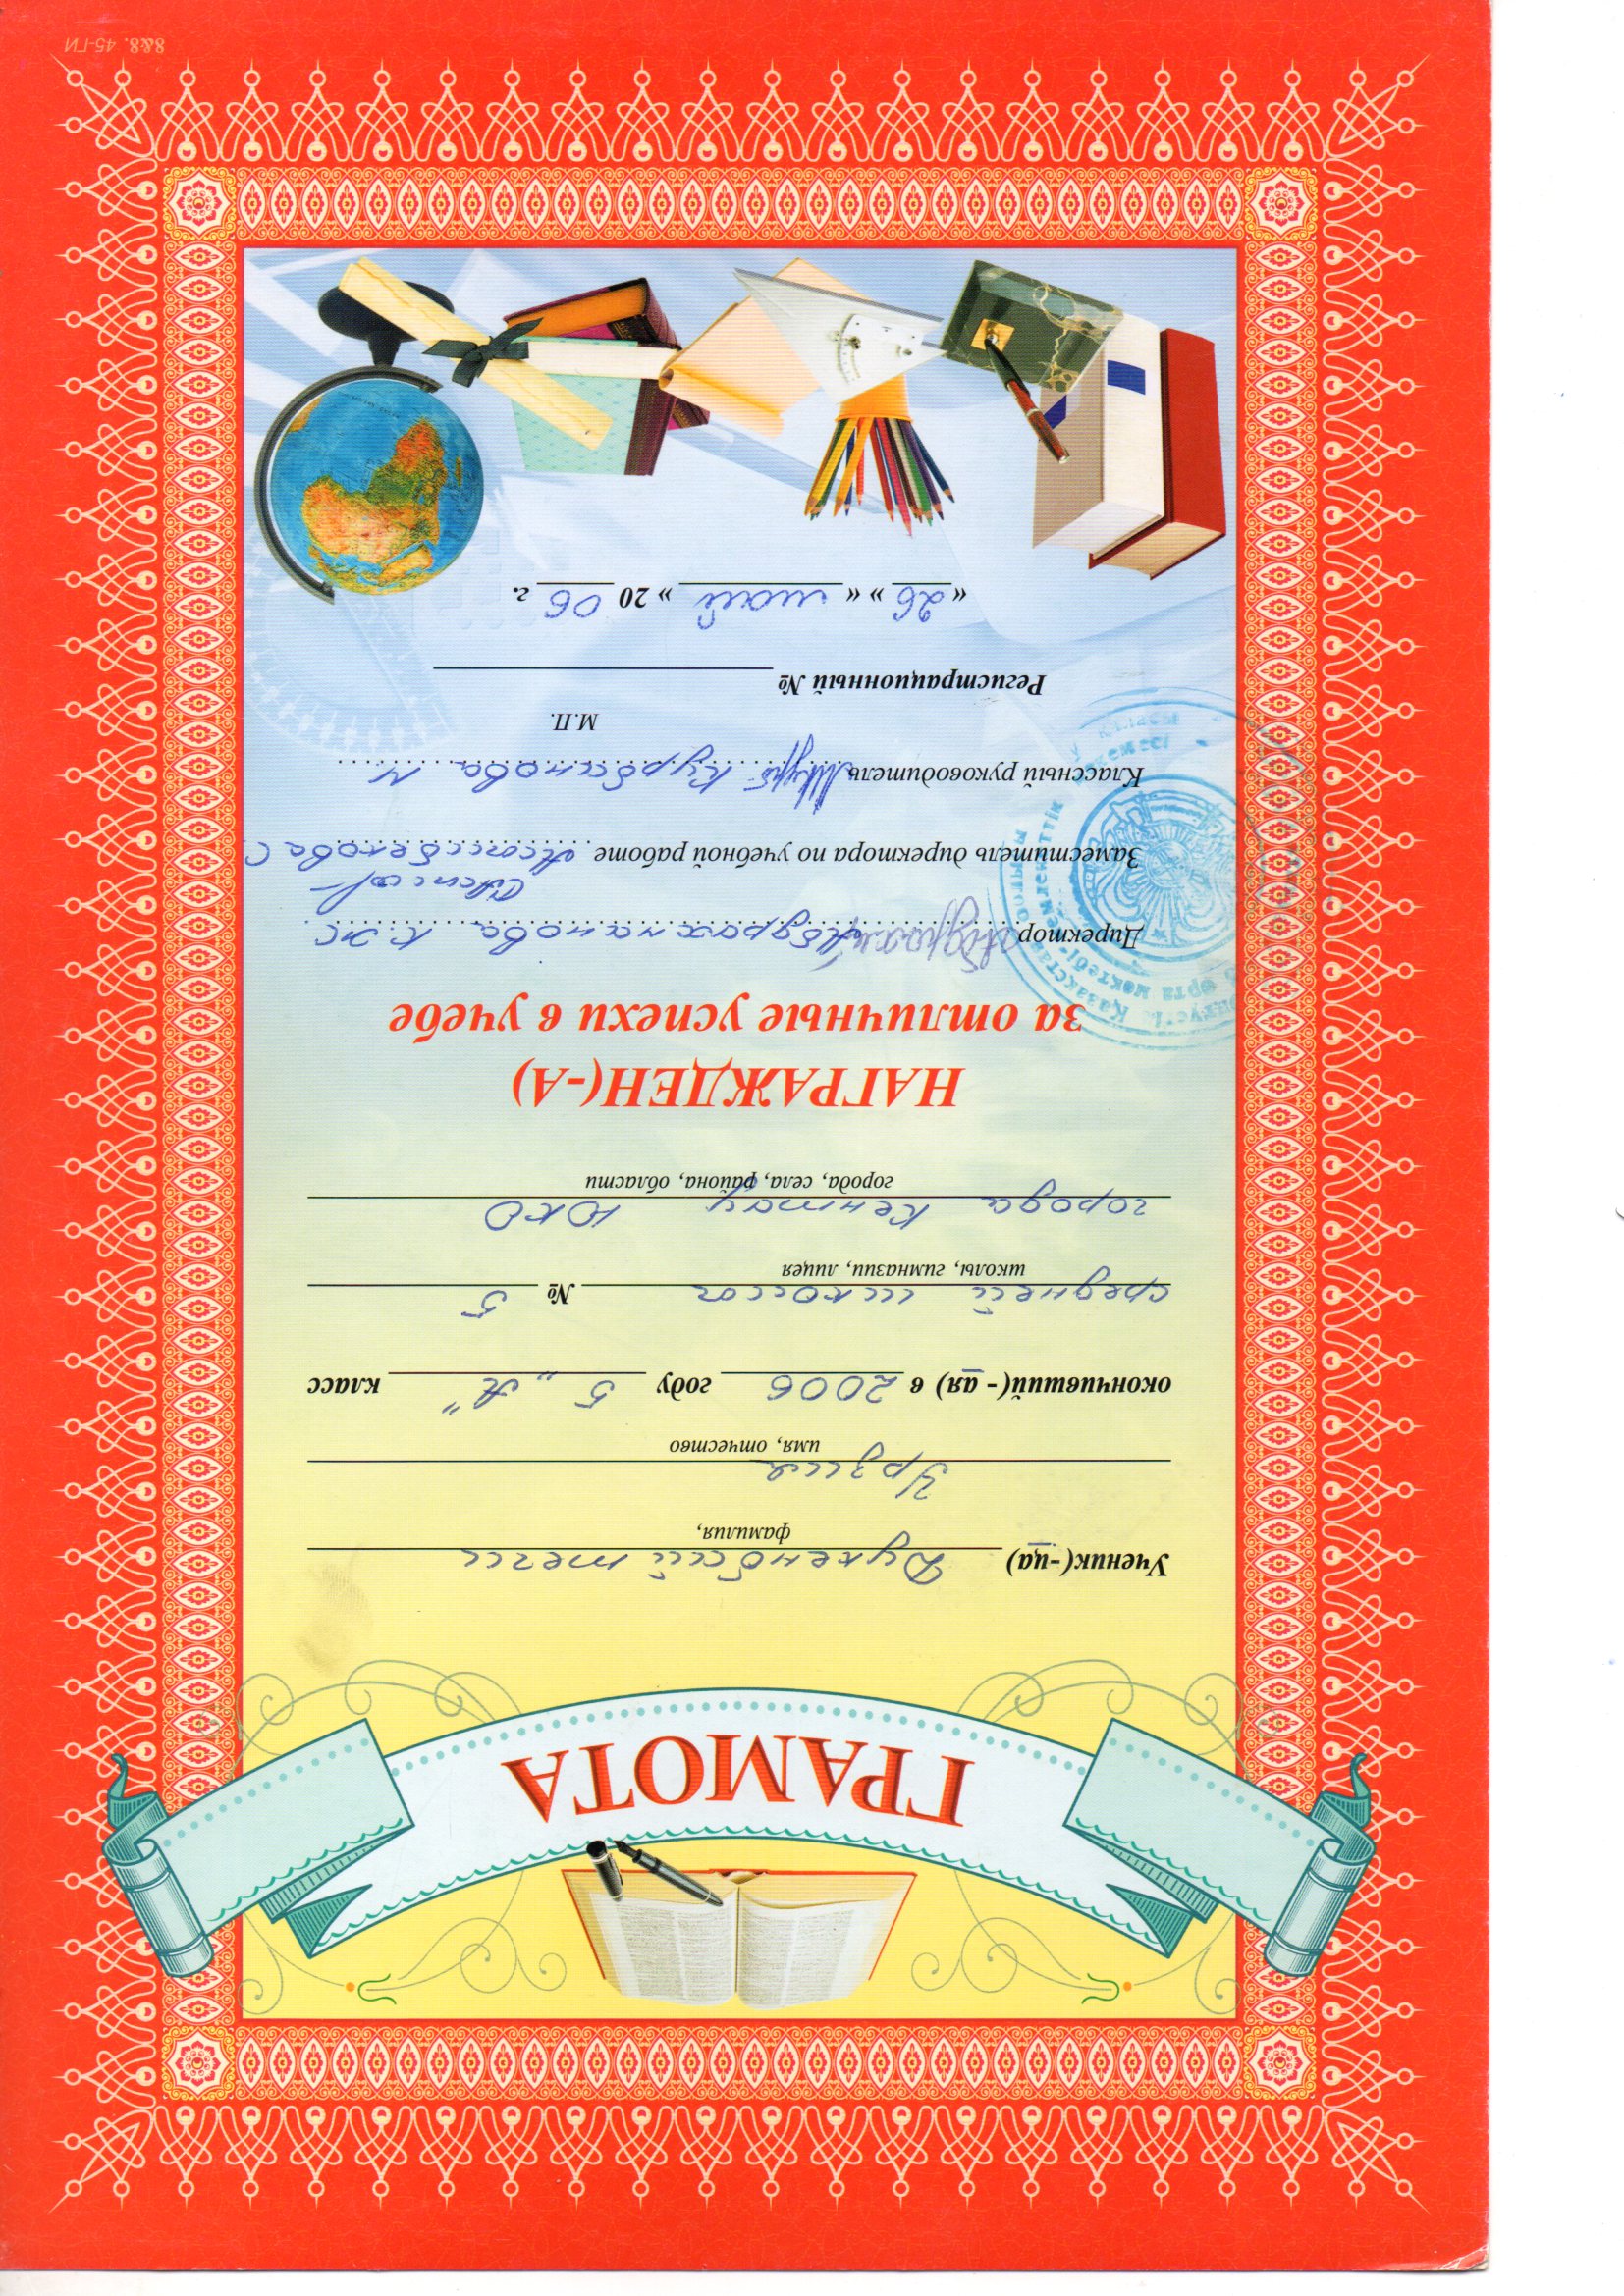 ГРАМОТА
Ученик(-ца)
фамилия,
имя, отчество
окончивший(-ая) в 2006 году 5 „А" класс
средней школы № 5
школы, гимназии, лицея
города Кентау ЮКО
города, села, района, области
НАГРАЖДЕН(-А)
за отличные успехи в учебе
Директор Абдрахманова К.Ж
Заместитель директора по учебной работе
Классный руководитель Курбанова М
М.П.
Регистрационный №
« 26 » « май » 20 06 г.
8&8. 45-ГИ